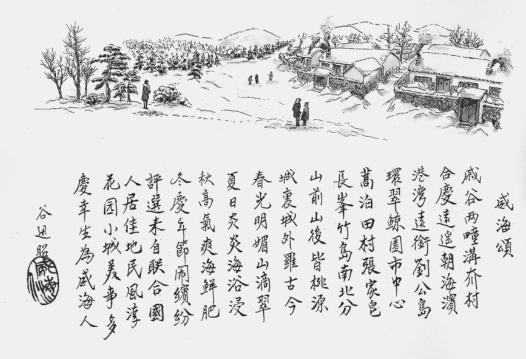 威海頌
戚谷两疃溝夼村
合慶遠遥朝海濱
港灣遠銜劉公島
環翠鯨園市中心
蒿泊田村張家邑
長峯竹島南北分
山前山後皆桃源
城裏城外羅古今
春光明媚山滴翠
夏日炎炎海浴浸
秋高氣爽海鮮肥
冬慶年節鬧繽紛
評選来自聯合國
人居佳地民風淳
花园小城美事多
慶幸生為威海人
谷迅昭